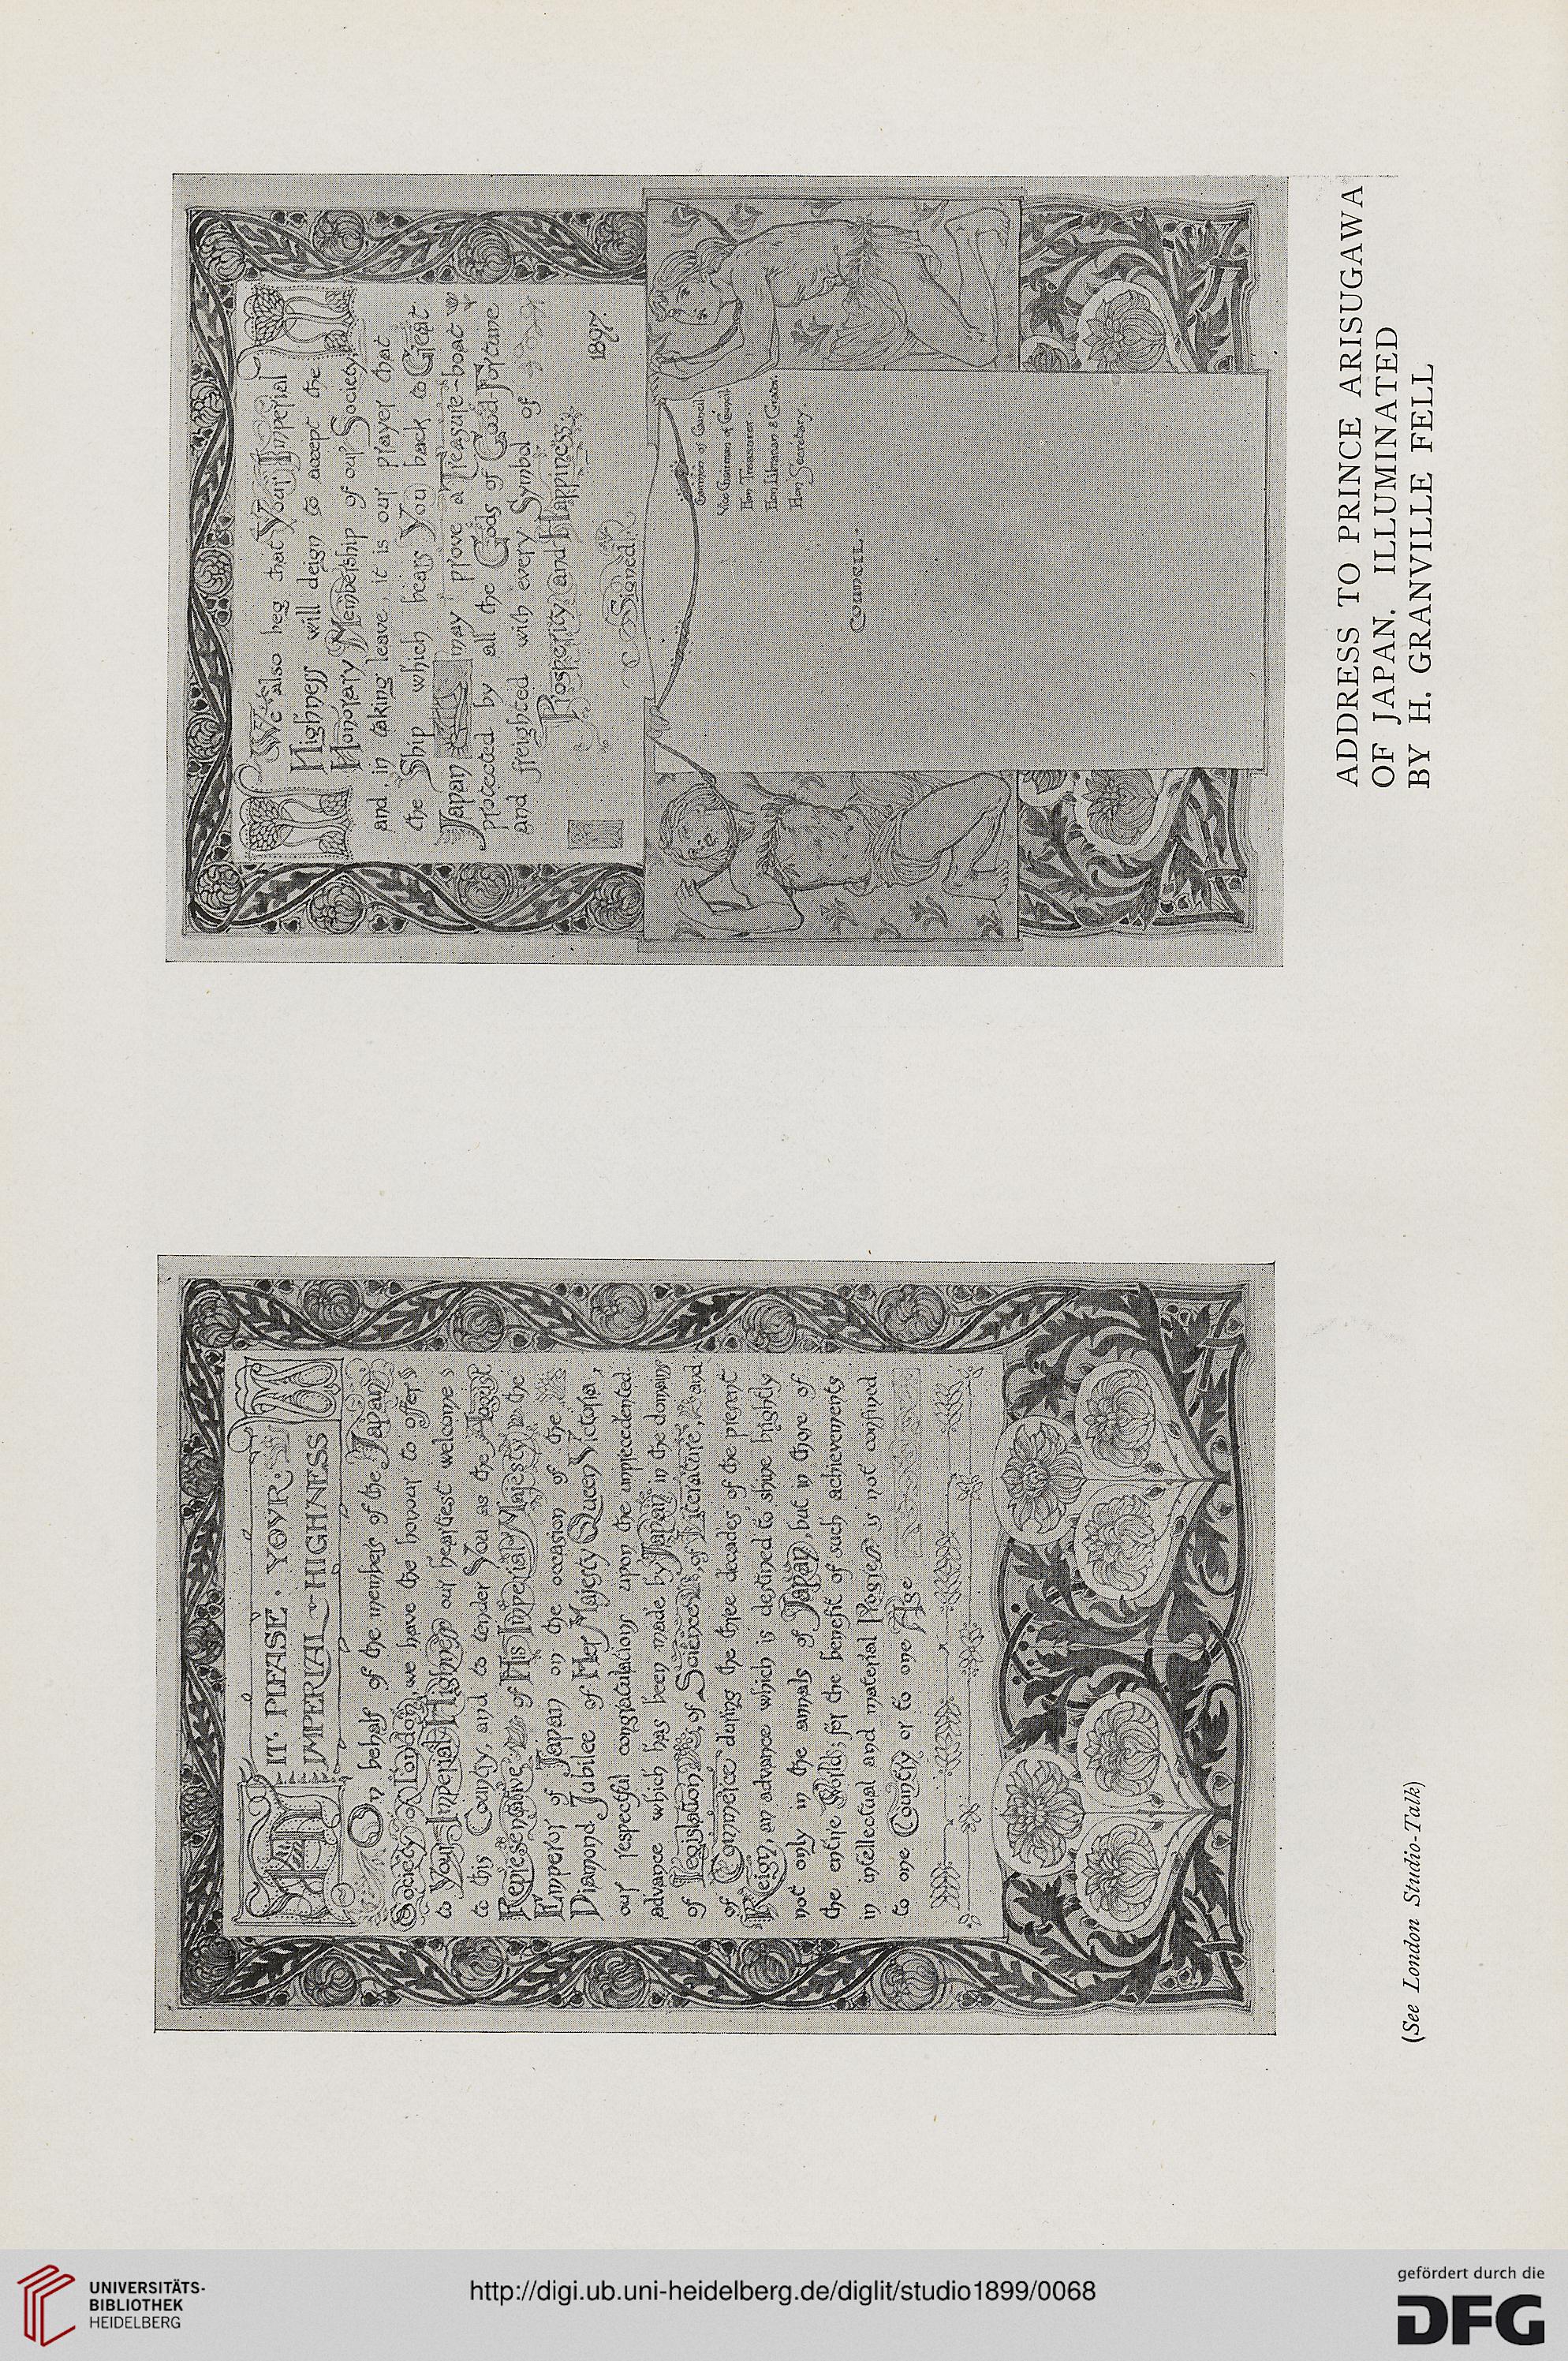 MAY IT · PLEASE · YOVR:
IMPERIAL HIGHNESS
On behalf of the members of the Japan
Society, London, we have the honour to offer
to Your Imperial Highness our heartiest welcome
to this Country, and to tender You as the August
Representative of His Imperial Majesty the
Emperor of Japan on the occasion of the
Diamond Jubilee of Her Majesty Queen Victoria,
our respectful congratulations upon the unprecedented
advance which has been made by Japan in the domains
of Legislation, of Science, of Literature, and
of Commerce during the three decades of the present
Reign, an advance which is destined to shine brightly
not only in the annals of Japan, but in those of
the entire World; for the benefit of such achievements
in intellectual and material Progress is not confined
to one Country or to one Age
We also beg that Your Imperial
Highness will deign to accept the
Honorary Membership of our Society,
and, in taking leave, it is our prayer that
the Ship which bears You back to Great
Japan may prove a Treasure-boat
protected by all the Gods of Good-Fortune
and freighted with every Symbol of
Prosperity and Happiness.
1897.
(Signed)
Chairman of Council.
Vice Chairman of Council.
Hon Treasurer.
Hon Librarian & Curator.
Hon Secretary.
COUNCIL.
(See London Studio-Talk)
ADDRESS TO PRINCE ARISUGAWA
OF JAPAN. ILLUMINATED
BY H. GRANVILLE FELL
UNIVERSITÄTS-
BIBLIOTHEK
HEIDELBERG
http://digi.ub.uni-heidelberg.de/diglit/studio1899/0068
gefördert durch die
DFG